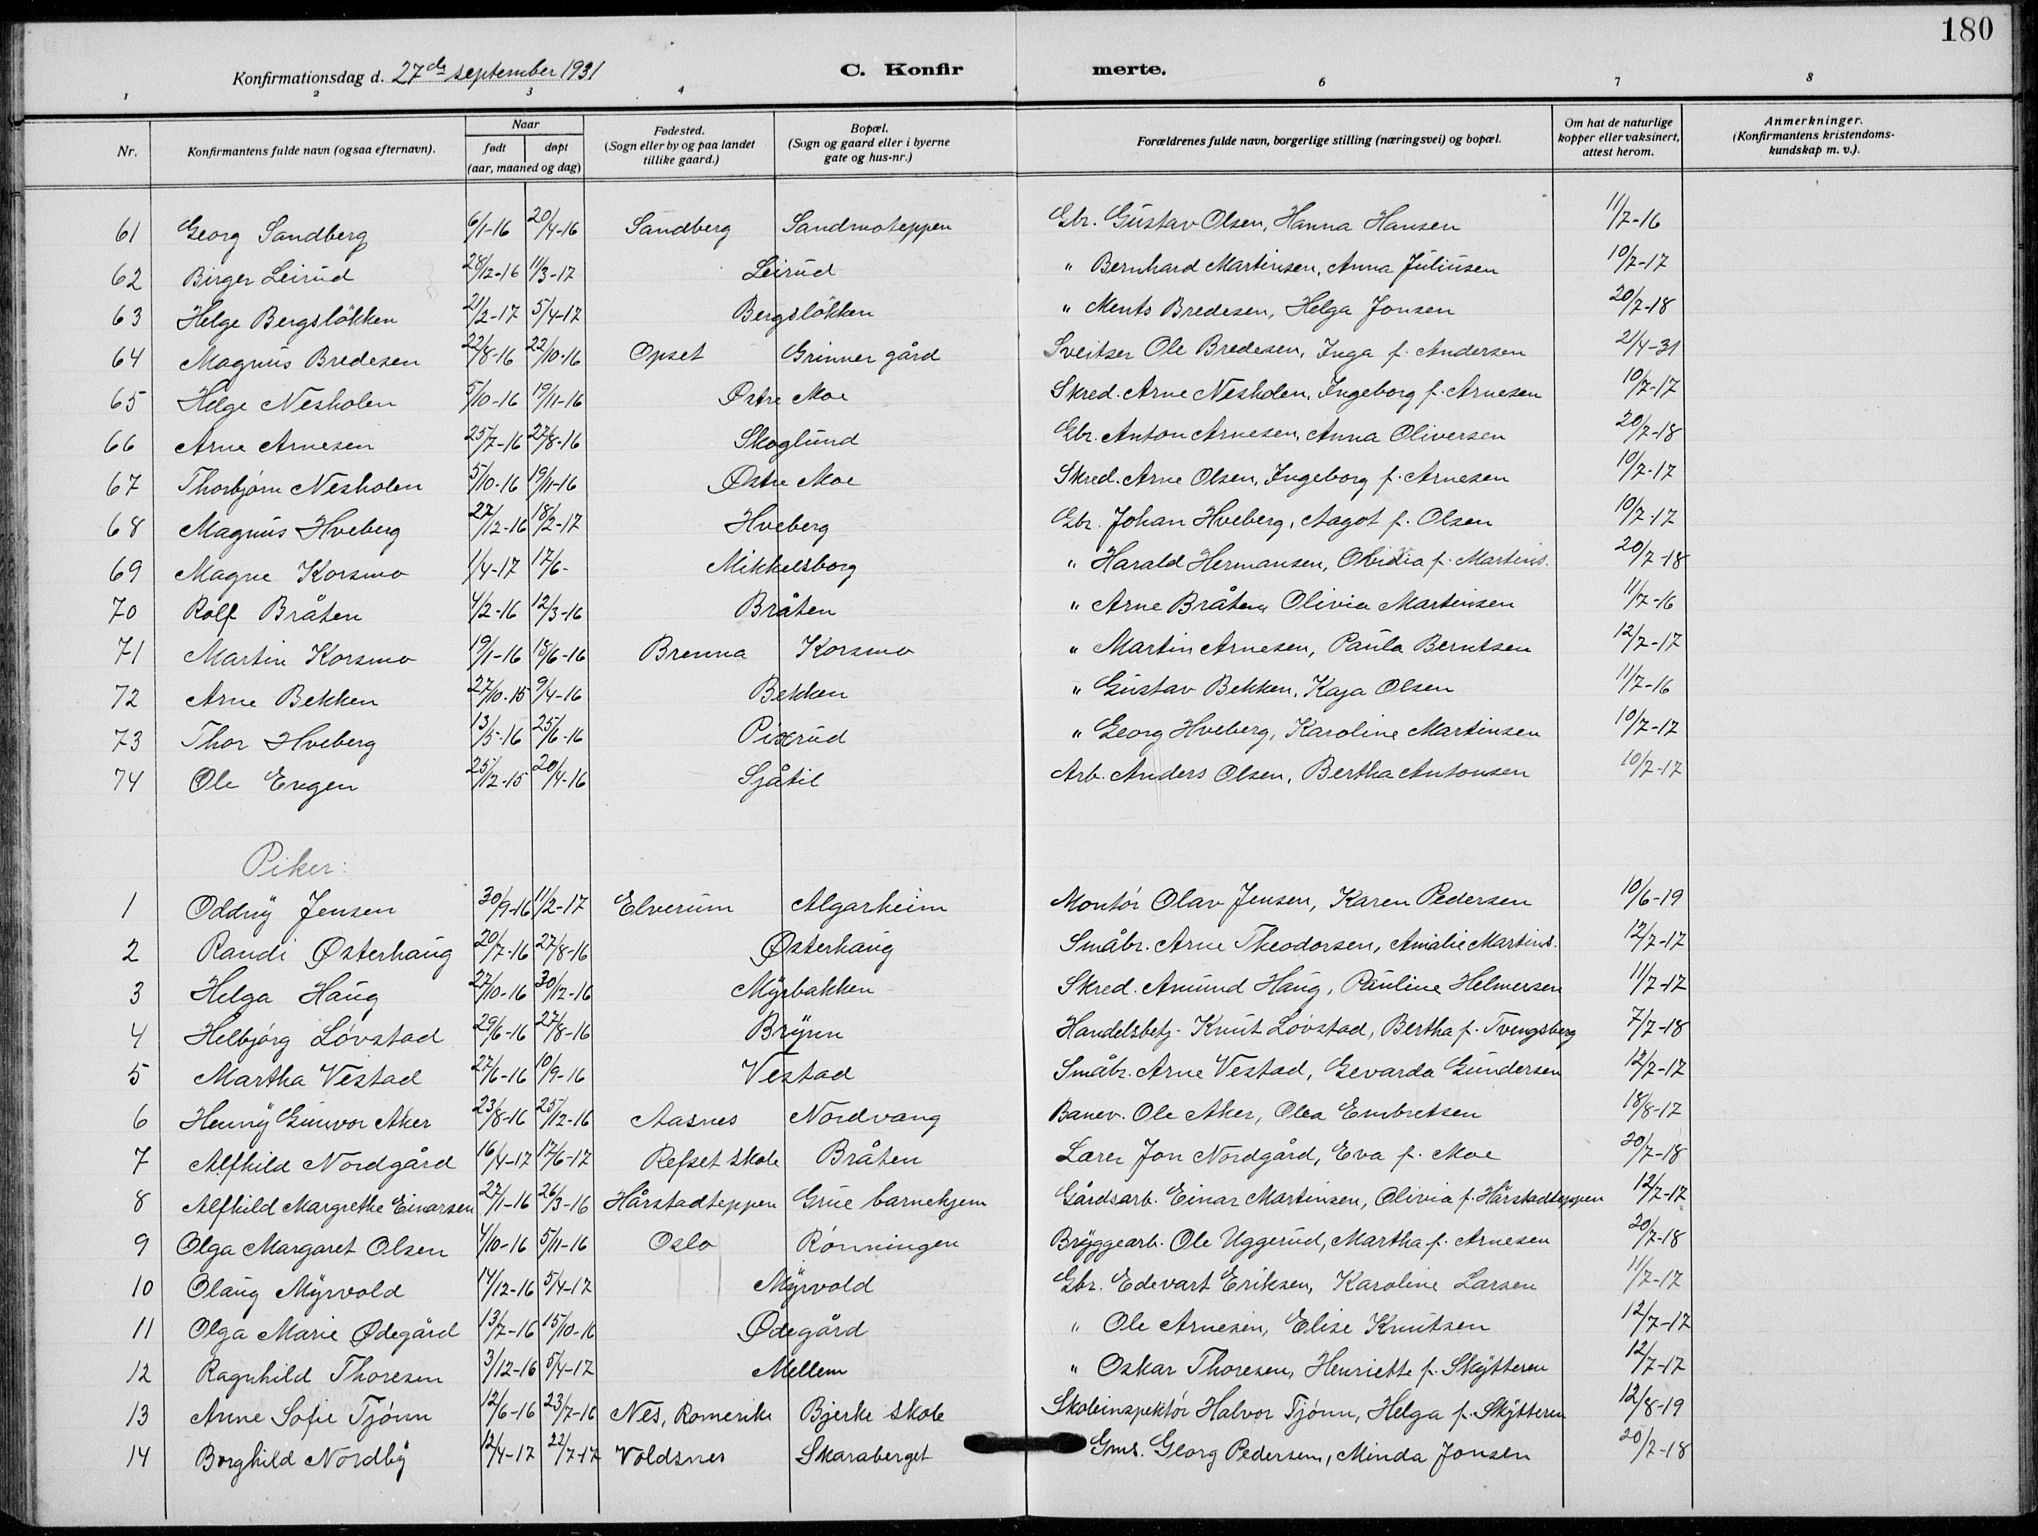 180
Konfirmationsdag d. 27de september 1931 C. Konfirmerte.
1 2 3 4 6 7 8
Nr. Konfirmantens fulde navn (ogsaa efternavn). Naar født døpt (aar, maaned og dag) Fødested. (Sogn eller by og paa landet tillike gaard.) Bopæl. (Sogn og gaard eller i byerne gate og hus-nr.) Forældrenes fulde navn, borgerlige stilling (næringsvei) og bopæl. Om hat de naturlige kopper eller vaksinert, attest herom. Anmerkninger. (Konfirmantens kristendoms-kundskap m. v.).
61 Georg Sandberg 6/1-16 20/4-16 Sandberg Sandmoteppen Gbr. Gustav Olsen, Hanna Hansen 11/7-16
62 Birger Leirud 28/12-16 11/3-17 Leirud " Bernhard Martinsen, Anna Juliusen 10/7-17
63 Helge Bergsløkken 21/2-17 5/4-17 Bergsløkken " Ments Bredesen, Helga Jonsen 20/7-18
64 Magnus Bredesen 22/8-16 22/10-16 Opset Grinner gård Sveitser Ole Bredesen, Inga f. Andersen 2/4-31
65 Helge Nesholen 5/10-16 19/11-16 Østre Moe Skred. Arne Nesholen, Ingeborg f. Arnesen 10/7-17
66 Arne Arnesen 25/7-16 27/8-16 Skoglund Gbr. Anton Arnesen, Anna Oliversen 20/7-18
67 Thorbjørn Nesholen 5/10-16 19/11-16 Østre Moe Skred. Arne Olsen, Ingeborg f. Arnesen 10/7-17
68 Magnus Hveberg 27/12-16 18/2-17 Hveberg Gbr. Johan Hveberg, Aagot f. Olsen 10/7-17
69 Magne Korsmo 1/4-17 17/6- Mikkelsborg " Harald Hermansen, Ovidia f. Martins. 20/7-18
70 Rolf Bråten 4/2-16 12/3-16 Bråten " Arne Bråten, Olivia Martinsen 11/7-16
71 Martin Korsmo 19/1-16 18/6-16 Brenna Korsmo " Martin Arnesen, Paula Berntsen 12/7-17
72 Arne Bekken 27/10-15 9/4-16 Bekken " Gustav Bekken, Kaja Olsen 11/7-16
73 Thor Hveberg 13/5-16 25/6-16 Pixrud " Georg Hveberg, Karoline Martinsen 10/7-17
74 Ole Engen 25/12-15 20/4-16 Sjåtil Arb. Anders Olsen, Bertha Antonsen 10/7-17
Piker:
1 Oddny Jensen 30/9-16 11/2-17 Elverum Algarheim Montør Olav Jensen, Karen Pedersen 10/6-19
2 Randi Østerhaug 20/7-16 27/8-16 Østerhaug Småbr. Arne Theodorsen, Amalie Martins. 12/7-17
3 Helga Haug 27/10-16 30/12-16 Myrbakken Skred. Amund Haug, Pauline Helmersen 11/7-17
4 Helbjørg Løvstad 29/6-16 27/8-16 Brynn Handelsbetj. Knut Løvstad, Bertha f. Tvengsberg 7/7-18
5 Martha Vestad 27/6-16 10/9-16 Vestad Småbr. Arne Vestad, Gevarda Gundersen 12/7-17
6 Henny Gunvor Aker 23/8-16 25/12-16 Aasnes Nordvang Banev. Ole Aker, Olea Embretsen 18/8-17
7 Alfhild Nordgård 16/4-17 17/6-17 Refset skole Bråten Lærer Jon Nordgård, Eva f. Moe 20/7-18
8 Alfhild Margrethe Einarsen 27/1-16 26/3-16 Hårstadteppen Grue barnehjem Gårdsarb. Einar Martinsen, Olivia f. Hårstadteppen 12/7-17
9 Olga Margaret Olsen 4/10-16 5/11-16 Oslo Rønningen Bryggearb. Ole Uggerud, Martha f. Arnesen 20/7-18
10 Olaug Myrvold 14/12-16 5/4-17 Myrvold Gbr. Edevart Eriksen, Karoline Larsen 11/7-17
11 Olga Marie Ødegård 13/7-16 15/10-16 Ødegård " Ole Arnesen, Elise Knutsen 12/7-17
12 Ragnhild Thoresen 3/12-16 5/4-17 Mellem " Oskar Thoresen, Henriette f. Skytteren 12/7-17
13 Anne Sofie Tjønn 12/6-16 23/7-16 Nes, Romerike Bjerke skole Skoleinspektør Halvor Tjønn, Helga f. Skytteren 12/8-19
14 Borghild Nordby 12/4-17 22/7-17 Voldsnes Skaraberget Gms. Georg Pedersen, Minda Jonsen 20/7-18